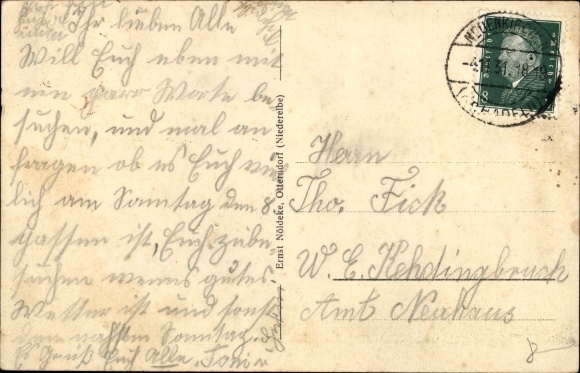 Ihr lieben Alle
Will Euch eben mit
nen paar Worte be
suchen, und mal an
fragen ob es Euch
lich am Sonntag den 8
passen ist, Euch zube-
suchen wenns gutes
Wetter ist und sonst
den nächsten Sonntag.
Es Grüß Euch Alle. Toni u
Ernst Nöldeke, Otterndorf (Niederelbe)
31. 18
Herrn
Tho. Fick
W. E. Kehdingbruch
Amt Neuhaus